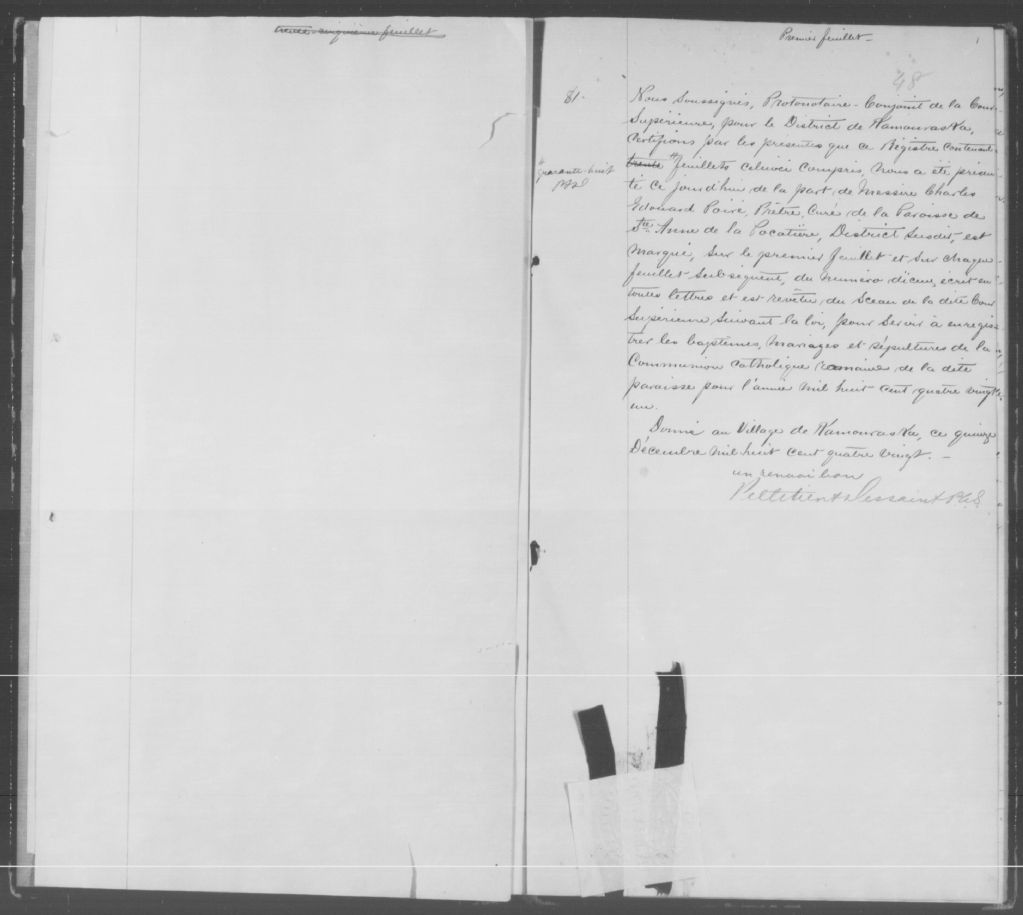 trente-cinquième feuillet
Premier feuillet -
48
81.
Nous Soussignés, Protonotaire-Conjoint de la Cour
Supérieure, pour le District de Kamouraska,
Certifions par les présentes que ce Régistre contenant
trente feuillets celuici compris, Nous a été présen-
quarante-huit
té ce jourd'hui de la part de Messire Charles
Edouard Poiré, Prêtre, Curé de la Paroisse de
Ste Anne de la Pocatière, District susdit, est
Marqué, sur le premier feuillet et sur chaque
feuillet subséquent, du numéro d'iceux, écrit en
toutes lettres et est revêtu du Sceau de la dite Cour
Supérieure, suivant la loi, pour servir à enregis-
trer les baptêmes, Mariages et sépultures de la
Communion catholique romaine de la dite
paroisse pour l'année Mil huit cent quatre vingt-
un.
Donné au Village de Kamouraska, ce quinze
Décembre Mil huit cent quatre vingt. -
un renvoi bon
Pelletier & Dessaint P.C.S.